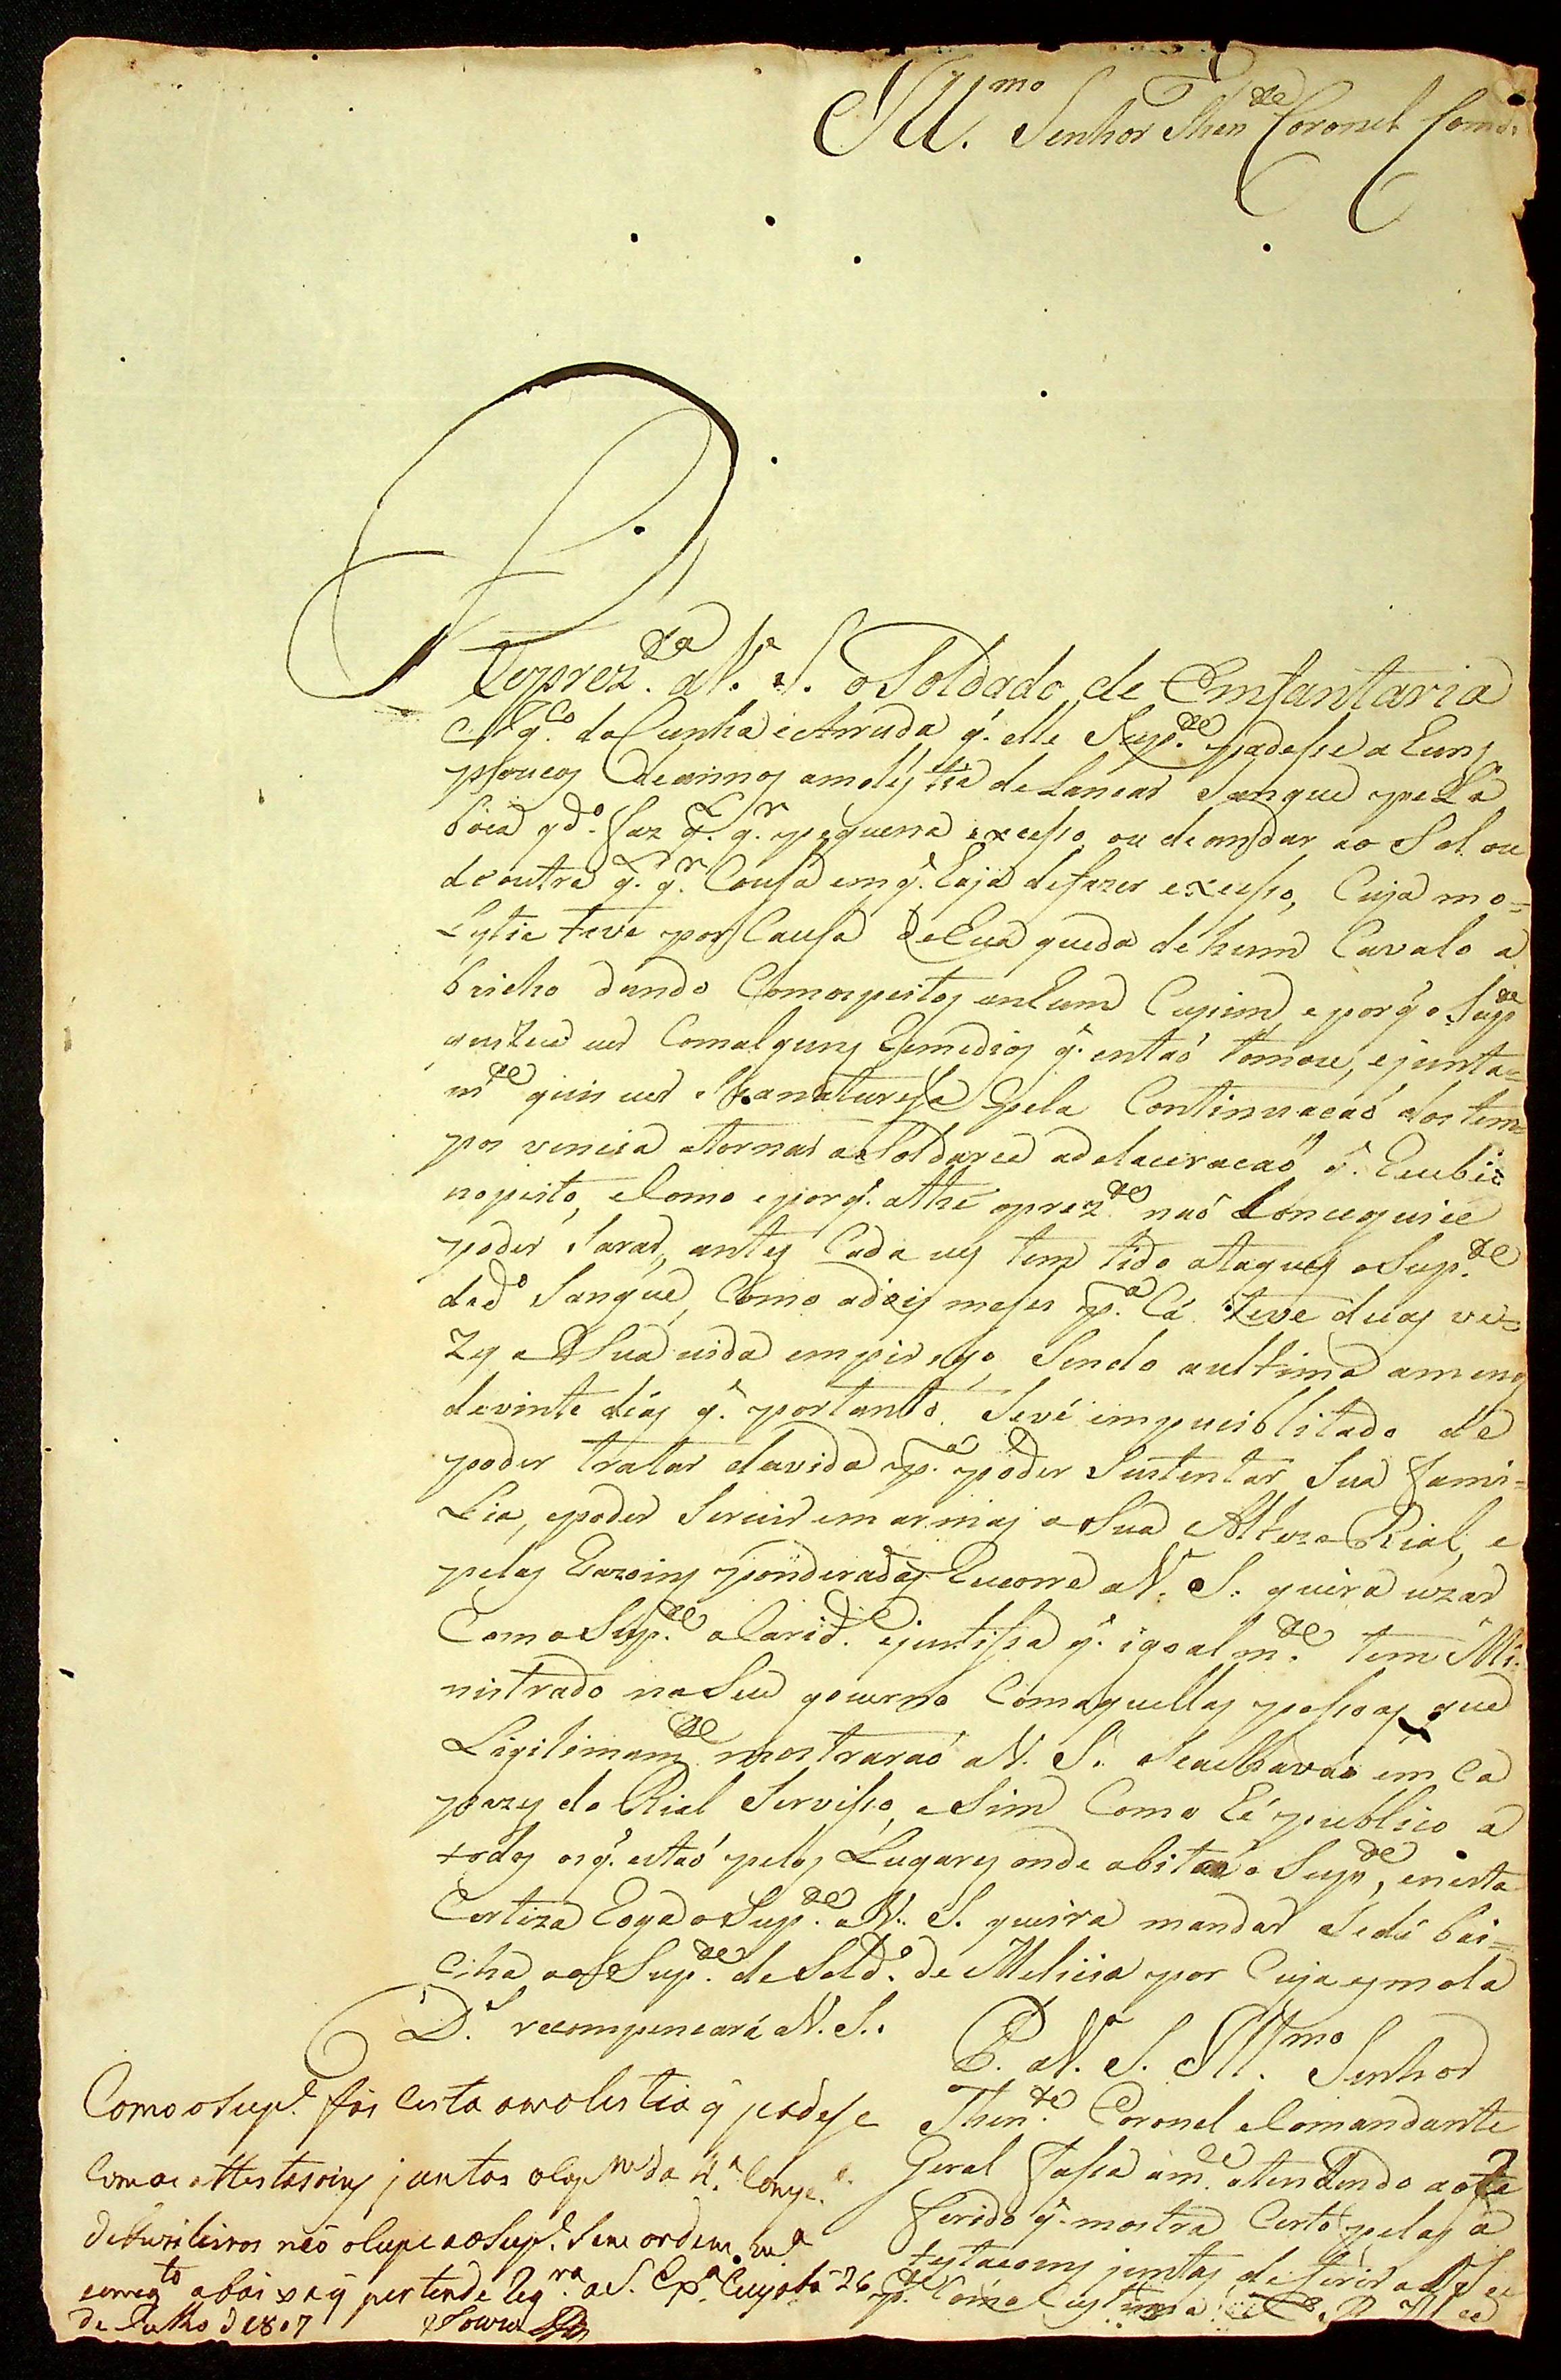 Ill.mo Senhor Then.te Coronel Com.
Reprez.ta a V. S. o Soldado de Emfantaria
da Cunha e Arruda q. elle Sup.te padesse a huns
poucos de annos a molestia de Lancar Sangue pella
boca qdo. faz q.l q.r pequena excesso ou de andar ao Sol ou
de outra q.l q.r Cousa em q. haja de fazer excesso, Cuja mo=
Lystia teve por Causa de hua queda de hum Cavalo a
bricho dando Com os peitos en hum Cupim, e porq. o Sup.te
Com alguns Remedios q. entaó tomou, e junta=
m.te quis a naturesa pela Continuacaó dos tem
pos vencia a tornar a Soldarce a delaceracaó q. Recebeo
no peito, e Como e porq. athé o prez.te naó Conceguice
poder Sarar, antes Cada ves tem tido ataques o Sup.te
de d.o Sangue, Como a dois meses p.a Cá teve duas ve=
Zes a Sua vida em pirigo, Sendo a ultima a menos
de vinte dias q. portanto Se vê impucibilitado de
poder tratar da vida p.a poder Sustentar Sua fami=
Lia, e poder Servir em armas a Sua Alteza Rial, e
pelas Razoins ponderadas Recorre a V. S. queira uzar
Com o Sup.te a Carid.e e justissa q. igoalm.te tem Mi=
nistrado no Seu governo Com aquellas pessoas que
Ligitimam.te mostraraó a V. S. Se achavaó em Ca
pazes do Rial Servisso, e Sim Como hé publico a
todos os q. estaó pelos Lugares onde abita o Sup.te, e nesta
Certeza Roga o Sup.te a V. S. queira mandar Se dê bai=
cha ao Sup.te de Sold.o de Melicia por Cuja esmola
D.s recompencará a V. S.
P. a V. S. Ill.mo Senhor
Then.te Coronel Comandante
Geral fassa a m.ce atendendo ao Re
ferido q. mostra Certo pelas a
testacoins juntas deferir ao Se
p.te Como Custuma
E. R. M.ce
Como o Sup.e fás Certa a molestia q padese
Com as attestasoins juntas o Cap.m da 4.a Comp.a
de fuzileiros não ocupe ao Sup.e Sem ordem m.a
emcoq.to a baixa q pertende req.ra a S. Ex.a Cuyabá 26
de Julho d 1807